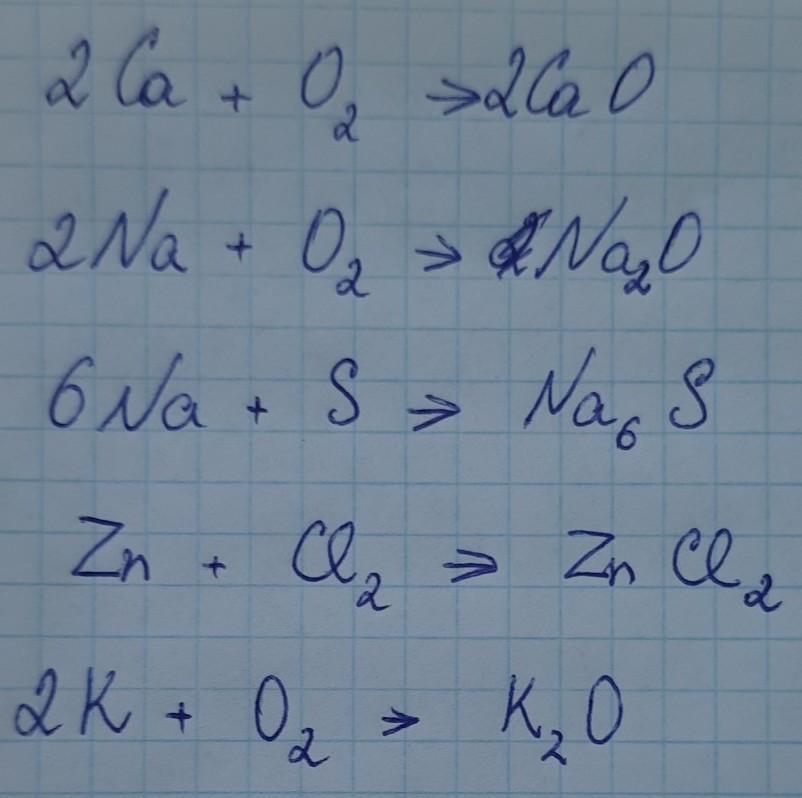 2Ca + O₂ → 2CaO
2Na + O₂ → Na₂O
6Na + S → Na₆S
Zn + Cl₂ → ZnCl₂
2K + O₂ → K₂O